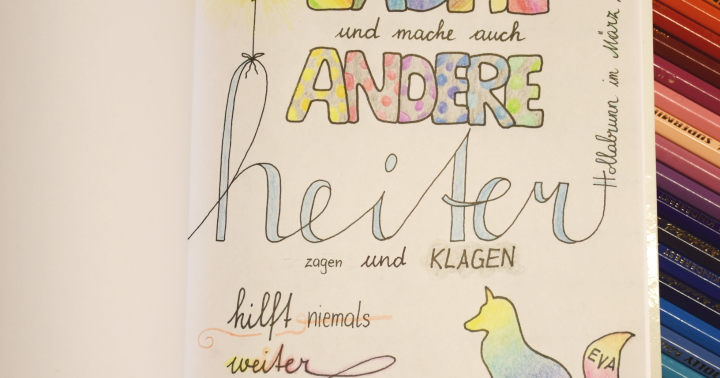 und mache auch
ANDERE
heiter
zagen und KLAGEN
hilft niemals
weiter
EVA
Hollabrunn im März